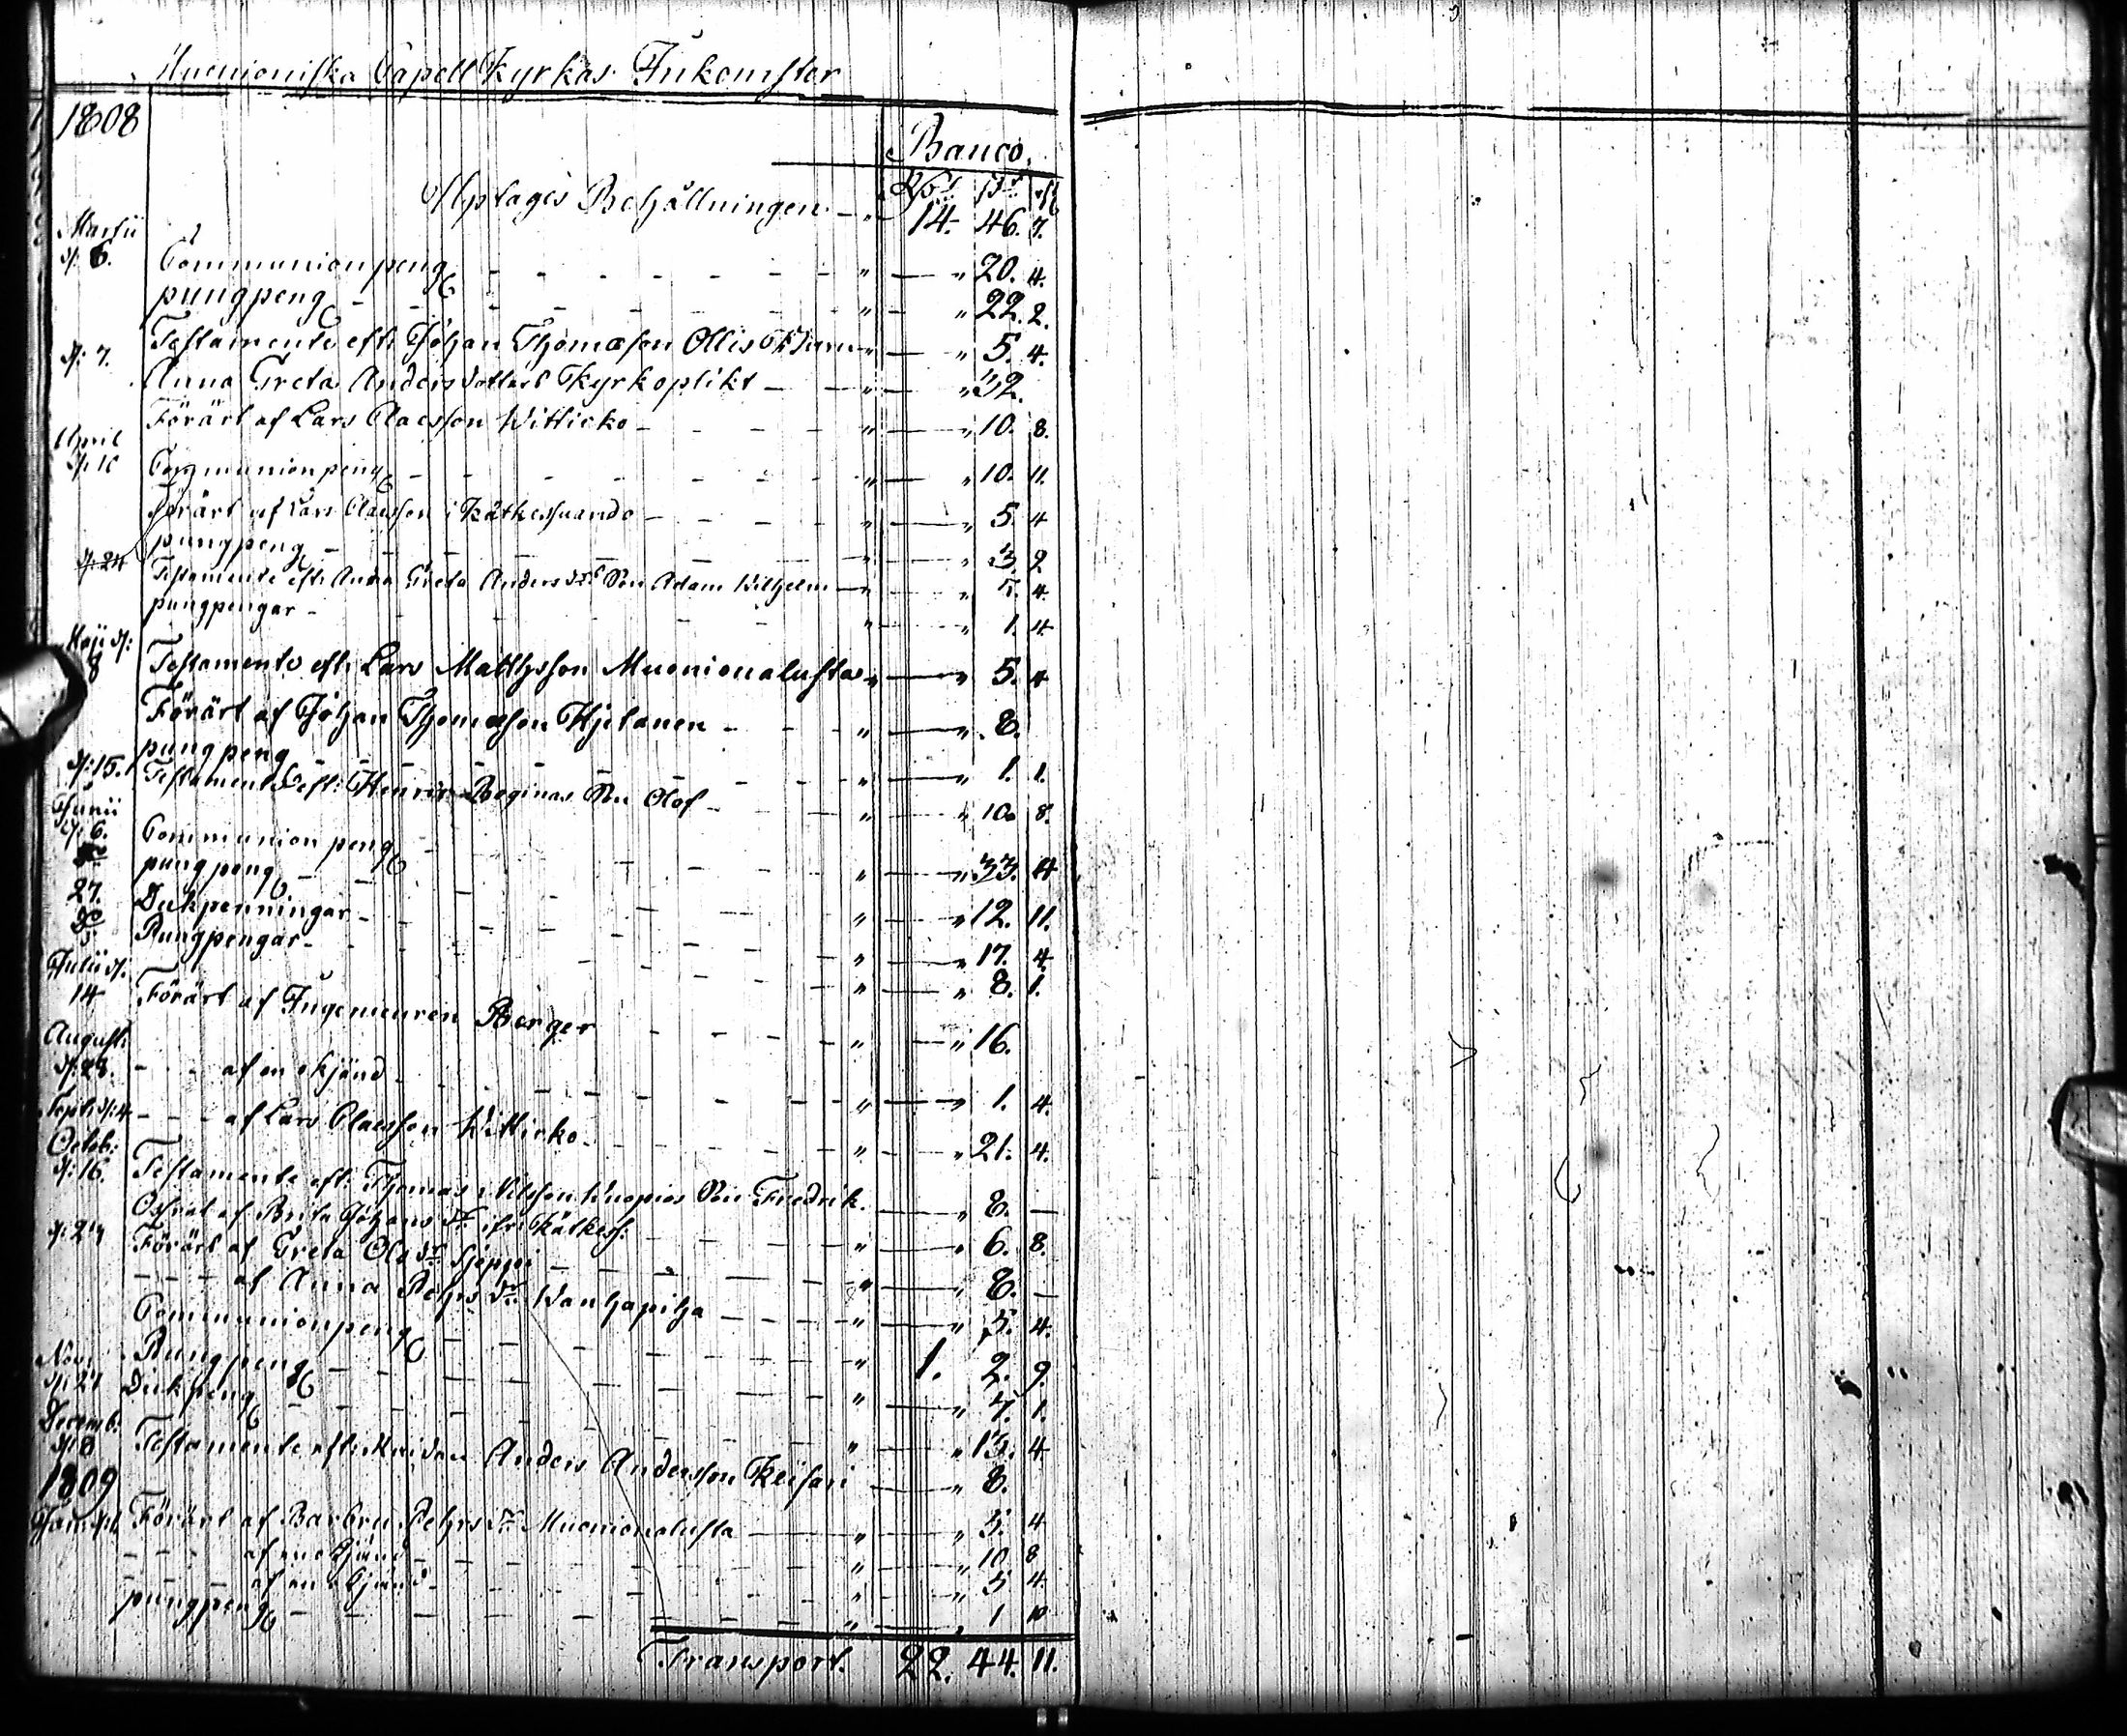 Muonioniska Capell Kyrkas Inkomster
1808
Banco.
Rd. s. r.
Uptages Behållningen - " 14. 46. 7.
Martii d. 6. Communionpeng - " — " 20. 4.
pungpeng - " — " 22. 2.
Testamente eft. Johan Thomæson Ollis " — " 5. 4.
d. 7. Anna Greta Andersdotters Kyrkoplikt - " — " 32.
Förärt af Lars Claesson Witticko - " — " 10. 8.
April d. 16 Communionpeng - " — " 10. 11.
Förärt af Lars Claesson i Kätkessuando - " — " 5. 4
pungpeng - " — " 3. 2
d. 24 Testamente eft. Anna Greta Anders dr. Son Adam Wilhelm - " — " 5. 4.
pungpengar - " — " 1. 4
Maji d. 8 Testamente eft. Lars Matthsson Muonionalusta " — " 5. 4
Förärt af Johan Thomæson Hjetanen - " — " 8.
pungpeng - " — " 1. 1.
d. 15. Testamente eft. Henric Reginas Son Olof - " — " 10. 8.
Junii d. 6. Communion peng - " — " 33. 4
Do pungpeng - " — " 12. 11.
27. Dukpenningar - " — " 17. 4.
Do Pungpengar - " — " 8. 1.
Julii d. 14 Förärt af Ingenieuren Berger - " — " 16.
August. d. 28. - - af en okjänd - " — " 1. 4.
Sept. d. 4 - - - af Lars Claesson Witticko - " — " 21. 4.
Octob. d. 16. Testamente eft. Thomas Nilsson Kuopios Son Fredrik. — " 8. —
Offrat af Brita Johans dr. ifr. Kätkess. - " — " 6. 8.
d. 24 Förärt af Greta Ols dr. Sjeppi - " — " 8. —
- - - af Anna Pehrs dr. Wanhapiha - " — " 5. 4.
Communionpeng - " 1. 2. 9.
Pungpeng - " — " 7. 1.
Nov. d. 27 Dukpeng - " — " 13. 4
Decemb. d. 8 Testamente eft. Anders Andersson Keisari — " 8.
1809
Jan. d. 1 Förärt af Barbru Pehrs dr. Muonionalusta - " — " 5. 4
- - - af en okjänd - " — " 10 8
- - - af en okjänd - " — " 5 4
pungpeng - " — " 1 10
Transport. 22. 44. 11.